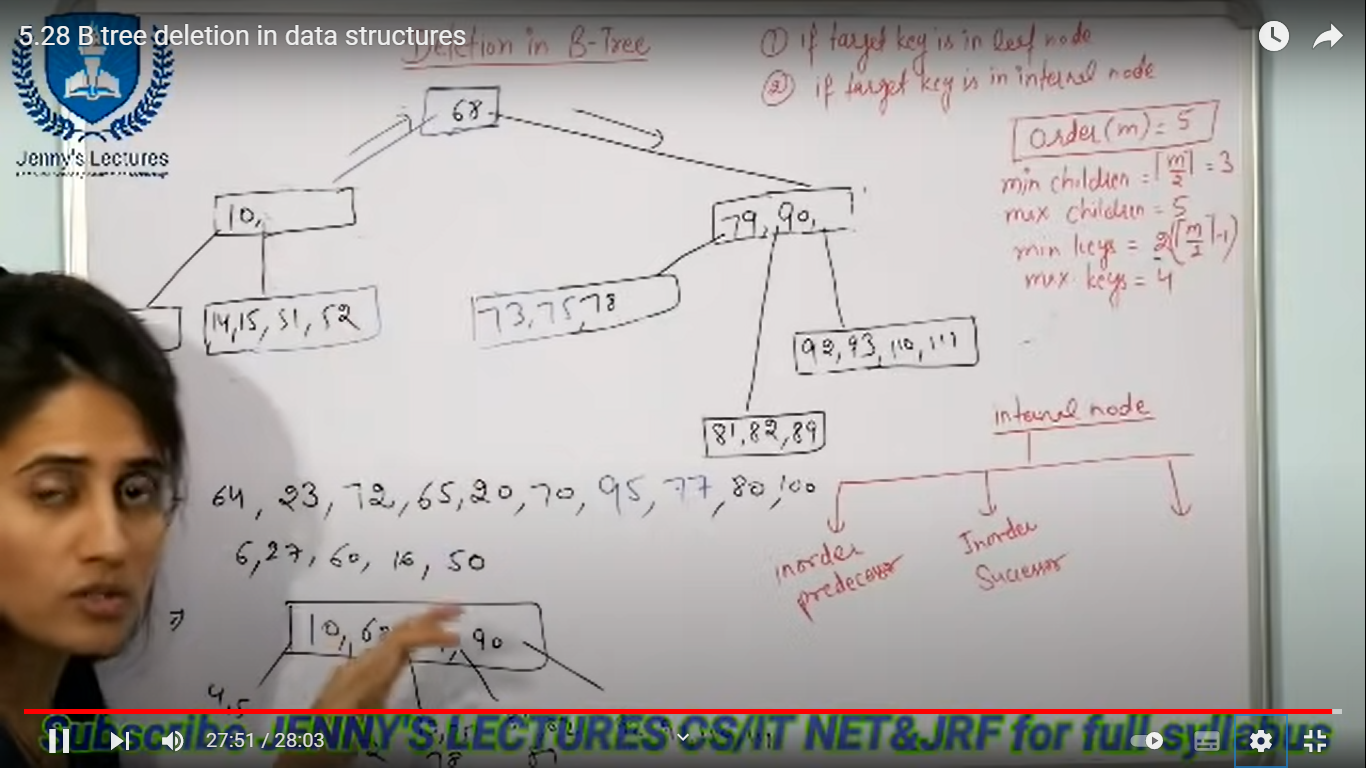 5.28 B tree deletion in data structures
Deletion in B-Tree
Jenny's Lectures
① if target key is in leaf node
② if target key is in internal node
68
order(m) = 5
min children = ⌈m/2⌉ = 3
max children = 5
min keys = 2(⌈m/2⌉-1)
max keys = 4
10,
79, 90,
14, 15, 51, 52
73, 75, 78
92, 93, 110, 111
81, 82, 89
internal node
Inorder predecessor
Inorder Sucessor
64, 23, 72, 65, 20, 70, 95, 77, 80, 100
6, 27, 60, 16, 50
10, 90
4, 5
78
Subscribe JENNY'S LECTURES CS/IT NET&JRF for full syllabus
27:51 / 28:03